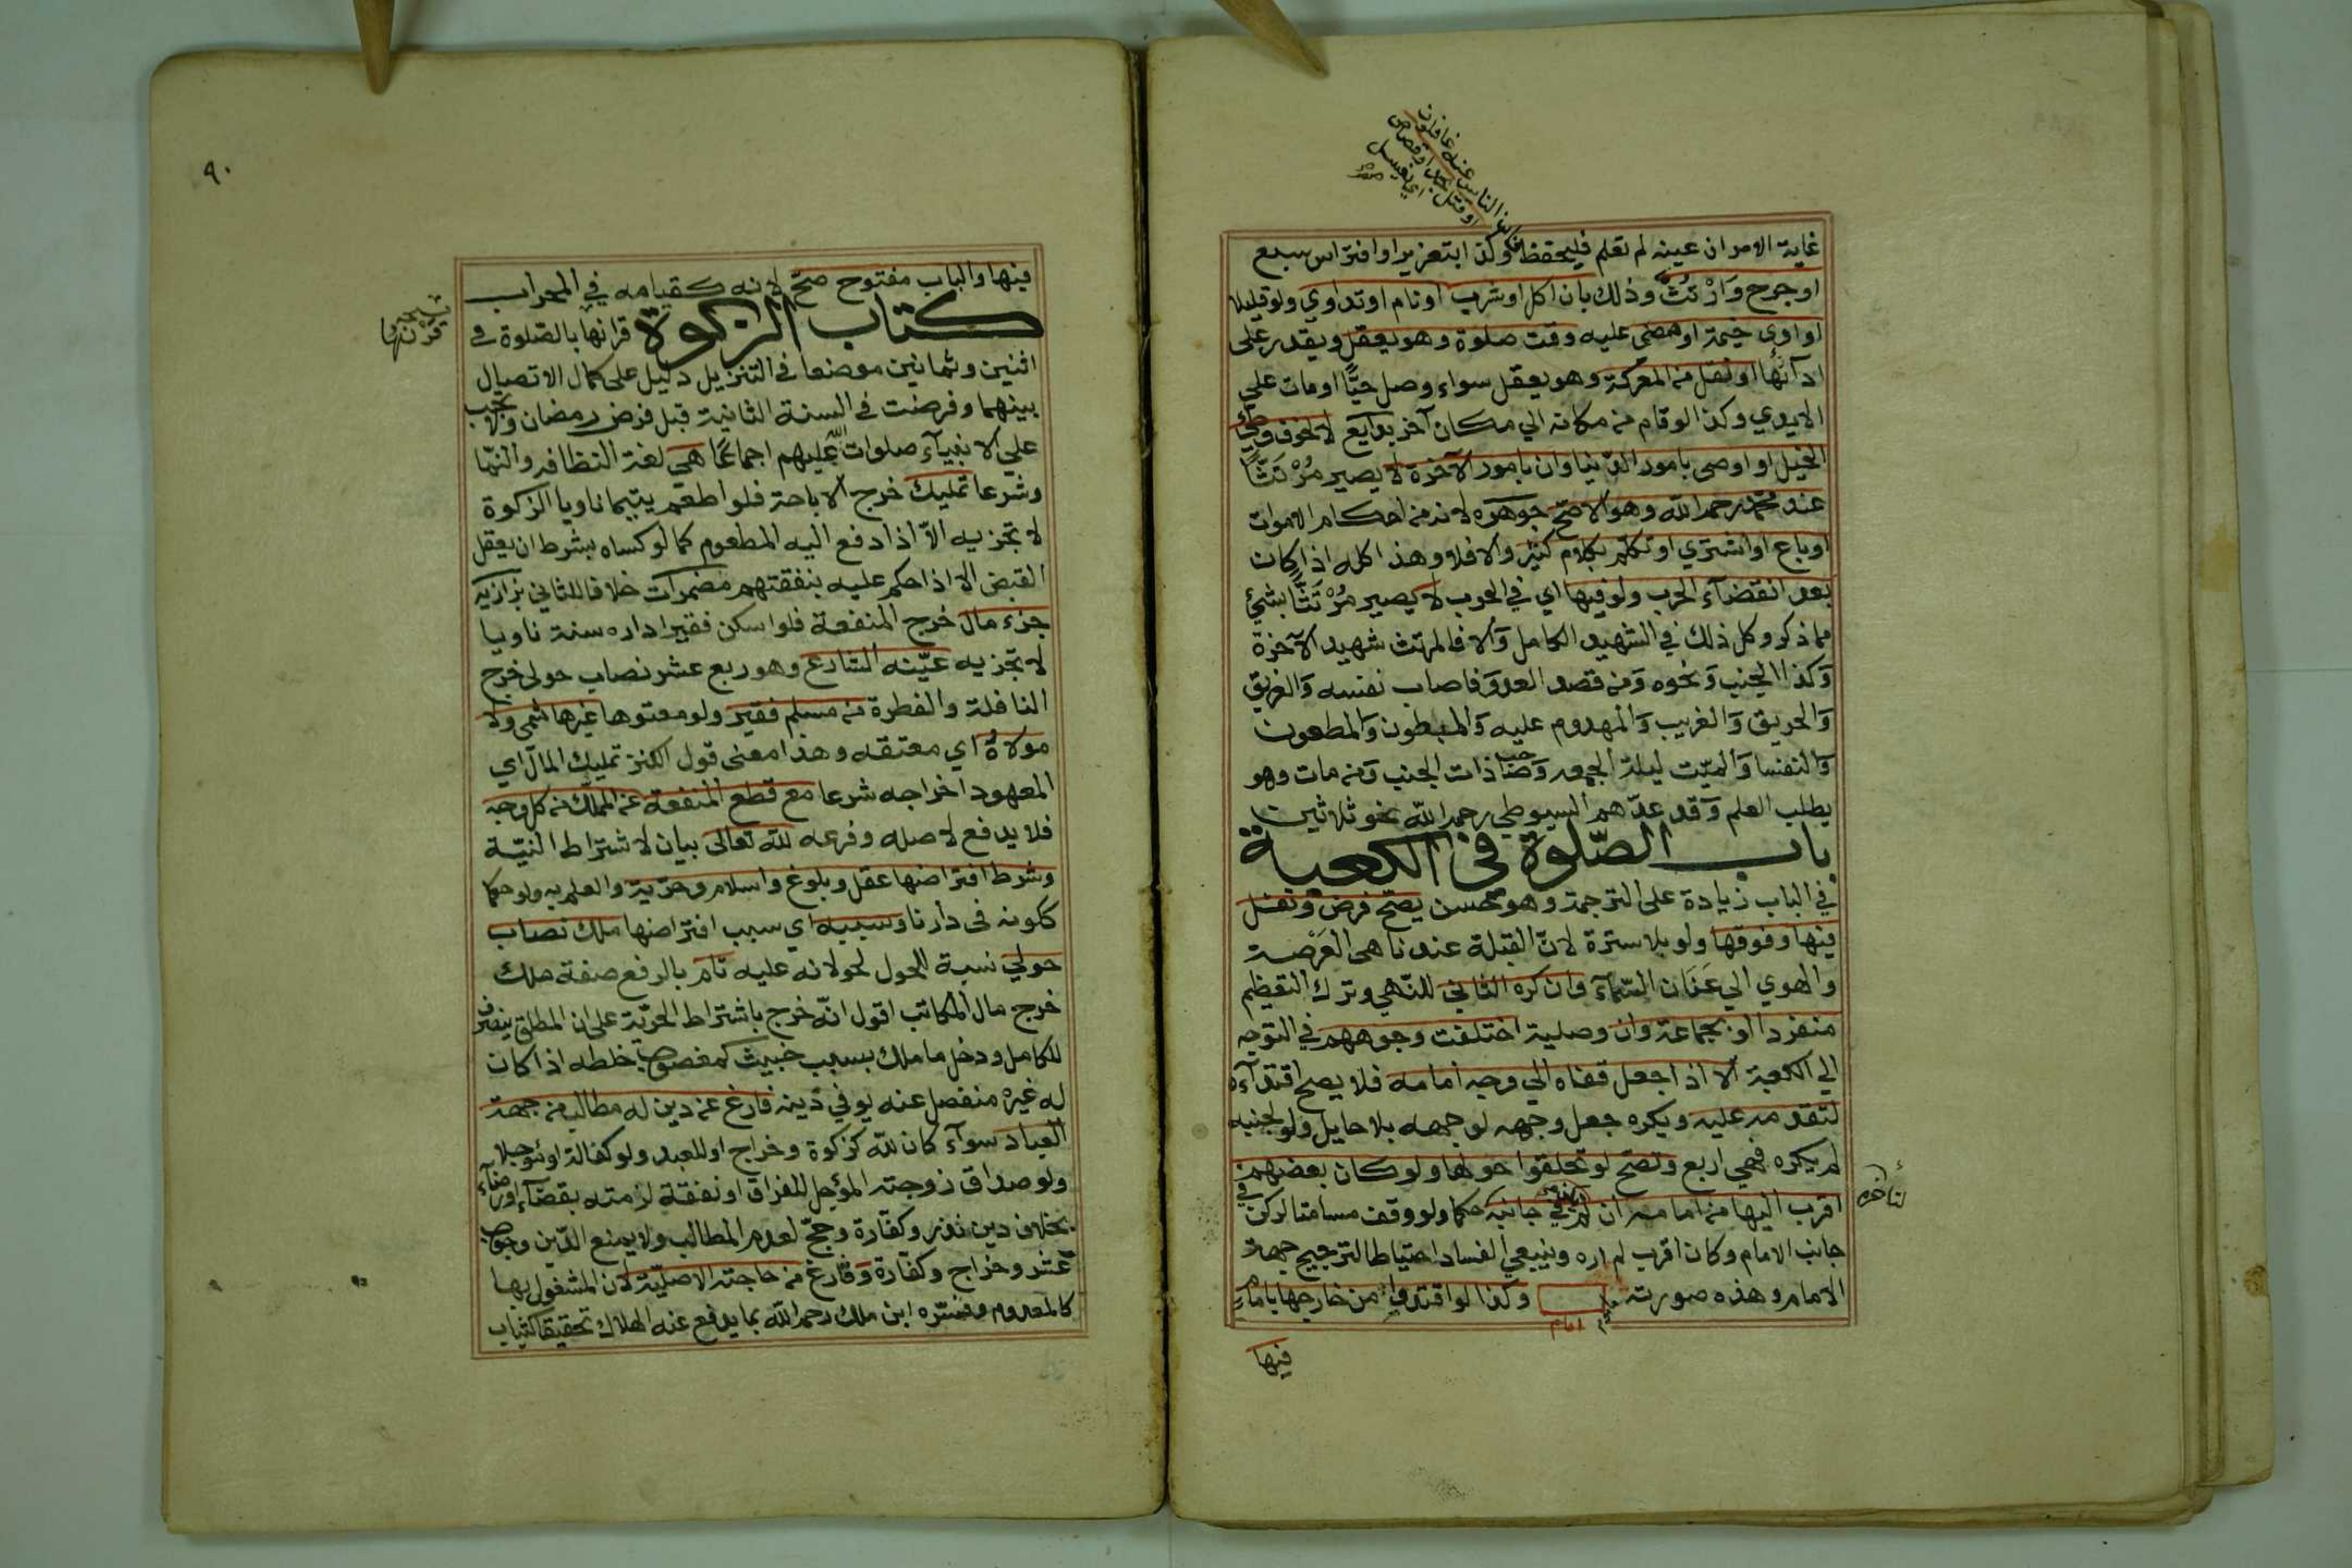 غاية الامران عينه لم تعلم فليحفظ فكوكذا بتعزير او افتراس سبع
فان الناس عنه غافلون
او قتل بحد او قصاص
اي يغسل
او جرح وَارْتُثَّ وذلك بان اكل او شرب او نام او تداوي ولو قليلا
او اوى خيمة او مضى عليه وقت صلوة وهو يعقل ويقدر على
ادآئها او نقل من المعركة وهو يعقل سواء وصل حيًّا او مات علي
الايدي وكذا لو قام من مكانه الي مكان آخر بدايع لا لخوف وطئ
الخيل او اوصى بامور الدّينا وان بامور الآخرة لا يصير مُرْتَثًّا
عند محمد رحمه الله وهو الاصحّ جوهره لانه من احكام الاموات
او باع او اشتري او تكلّم بكلام كثير والا فلا وهذا كله اذا كان
بعد انقضآء الحرب ولو فيها اي في الحرب لا يصير مُرْتَثًّا بشئ
مما ذكر وكل ذلك في الشهيد الكامل وَالا فالمرتث شهيد الآخرة
وَكذا الجنب وَنحوه وَمن قصد العدوّ فاصاب نفسه وَالغريق
وَالحريق وَالغريب وَالمهدوم عليه وَالمبطون وَالمطعون
وَالنفسا وَالميّت ليلة الجمعه وَصاحب ذات الجنب وَمن مات وهو
يطلب العلم وَقد عدّهم السيوطي رحمه الله نحو ثلاثين
باب الصّلوة في الكعبة
في الباب زيادة على الترجمة وهو حسن يصحّ فرض ونفل
فيها وفوقها ولو بلا سترة لانّ القبلة عندنا هى العَرْصة
والهوي الي عَنَان السّمآء وان كره الثاني للنّهي وترك التعظيم
منفردا او بجماعة وان وصلية اختلفت وجوههم في التوجه
الي الكعبة الا اذا جعل قفاه الي وجه امامه فلا يصح اقتدآءه
لتقدمه عليه ويكره جعل وجهه لوجهه بلا حايل ولو لجنبه
لم يكره فهي اربع وتصحّ لو تحلقوا حولها ولو كان بعضهم
اقرب اليها من امامه ان لم يكن في جانبه حكما ولو وقف مسامتا لركن في
لتأخره
جانب الامام وكان اقرب لم اره وينبغي الفساد احتياطا لترجيح جهة
الامام وهذه صورته وكذا لو اقتدوا من خارجها بامام
امام
فيها
٩٠
فيها والباب مفتوح صحّ لانه كقيامه في المحراب
كتاب الزكوة قرانها بالصّلوة في
قرنها
اثنين وثمانين موضعا في التنزيل دليل على كمال الاتصال
بينهما وفرضت في السنة الثانية قبل فرض رمضان ولا تجب
علي الانبيآء صلوات الله عليهم اجماعًا هي لغة النظافه والنّما
وشرعا تمليك خرج الاباحة فلو اطعم يتيما ناويا الزكوة
لا تجزيه الّا اذا دفع اليه المطعوم كما لو كساه بشرط ان يعقل
القبض الا اذا حكم عليه بنفقتهم مضمرات خلافا للثاني بزازيه
جزء مال خرج المنفعة فلو اسكن فقيرا داره سنة ناويا
لا تجزيه عيّنه الشارع وهو ربع عشر نصاب حولى خرج
النافلة والفطرة من مسلم فقير ولو معتوها غير هاشمي ولا
مولاهُ اي معتقه وهذا معنى قول الكنز تمليك المال اي
المعهود اخراجه شرعا مع قطع المنفعة عن المملك من كل وجه
فلا يدفع لاصله وفرعه لله تعالى بيان لاشتراط النيّة
وشرط افتراضها عقل وبلوغ واسلام وحرّية والعلم به ولو حكما
ككونه في دارنا وسببه اي سبب افتراضها ملك نصاب
حولي نسبة للحول لحولانه عليه تام بالرفع صفة ملك
خرج مال المكاتب اقول انّه خرج باشتراط الحرّية على ان المطلق ينصرف
للكامل ودخل ما ملك بسبب خبيث كمغصوب خلطه اذا كان
له غيره منفصل عنه يوفي دَينه فارغ عن دين له مطالب من جهة
العباد سوآء كان لله كزكوة وخراج او للعبد ولو كفالة او مؤجلا
ولو صداق زوجته المؤجل للفراق او نفقة لزمته بقضآء او رضآء
بخلاف دين نذر وكفّارة وحجّ لعدم المطالب ولا يمنع الدّين وجوب
عُشر وخراج وكفّارة وَفارغ من حاجته الاصليّة لان المشغول بها
كالمعدوم وفسّره ابن ملك رحمه الله بما يدفع عنه الهلاك تحقيقا كثياب